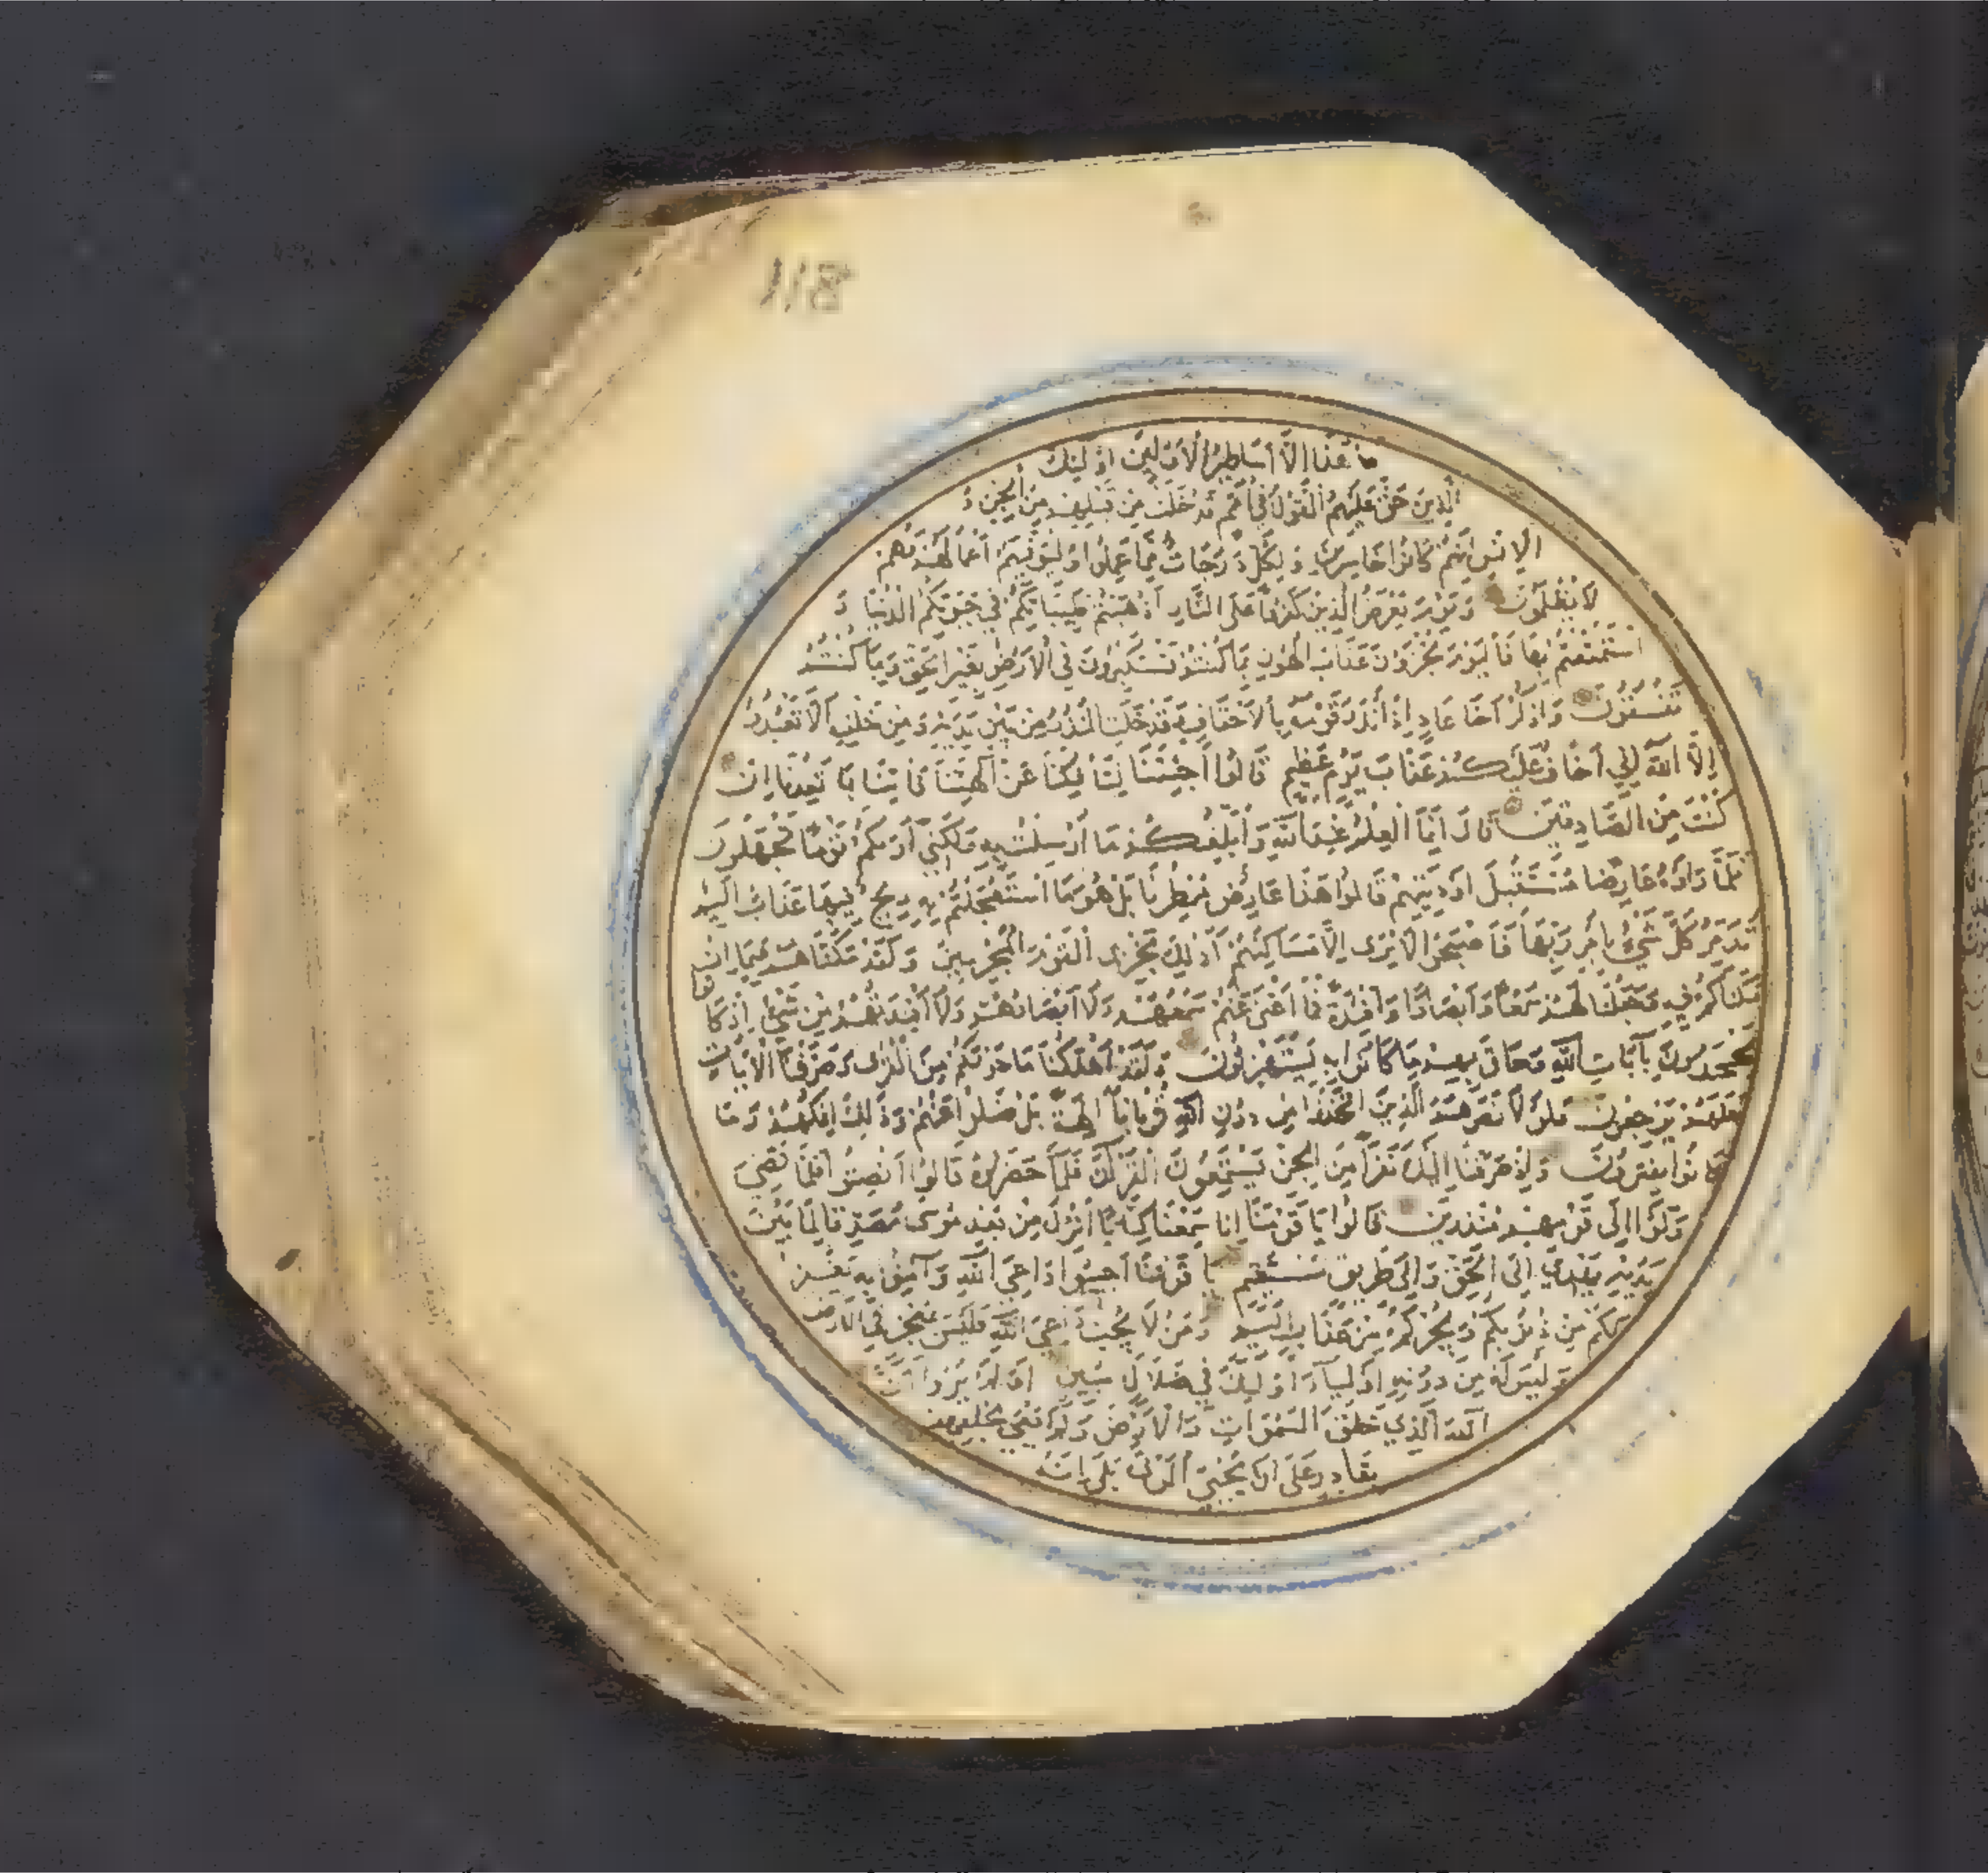 118
ما هذا الا أساطير الأولين أولئك
الذين حق عليهم القول في أمم قد خلت من قبلهم من الجن و
الانس انهم كانوا خاسرين ولكل درجات مما عملوا وليوفيهم أعمالهم وهم
لا يظلمون ويوم يعرض الذين كفروا على النار أذهبتم طيباتكم في حيوتكم الدنيا و
استمتعتم بها فاليوم تجزون عذاب الهون بما كنتم تستكبرون في الأرض بغير الحق وبما كنتم
تفسقون واذكر أخا عاد إذ أنذر قومه بالأحقاف وقد خلت النذر من بين يديه ومن خلفه ألا تعبدوا
إلا الله إني أخاف عليكم عذاب يوم عظيم قالوا أجئتنا لتأفكنا عن آلهتنا فاتنا بما تعدنا ان
كنت من الصادقين قال انما العلم عند الله وأبلغكم ما أرسلت به ولكني أريكم قوما تجهلون
فلما رأوه عارضا مستقبل اوديتهم قالوا هذا عارض ممطرنا بل هو ما استعجلتم به ريح فيها عذاب اليم
تدمر كل شيء بأمر ربها فأصبحوا لا يرى الا مساكنهم كذلك نجزي القوم المجرمين ولقد مكناهم فيما ان
مكناكم فيه وجعلنا لهم سمعا وأبصارا وأفئدة فما اغنى عنهم سمعهم ولا ابصارهم ولا أفئدتهم من شيء إذ كانوا
يجحدون بآيات الله وحاق بهم ما كانوا به يستهزؤن ولقد أهلكنا ما حولكم من القرى وصرفنا الآيات
لعلهم يرجعون فلولا نصرهم الذين اتخذوا من دون الله قربانا آلهة بل ضلوا عنهم وذلك افكهم وما
كانوا يفترون وإذ صرفنا اليك نفرا من الجن يستمعون القرآن فلما حضروه قالوا أنصتوا فلما قضي
ولوا الى قومهم منذرين قالوا يا قومنا انا سمعنا كتابا أنزل من بعد موسى مصدقا لما بين
يديه يهدي الى الحق والى طريق مستقيم يا قومنا أجيبوا داعي الله وآمنوا به يغفر
لكم من ذنوبكم ويجركم من عذاب اليم ومن لا يجب داعي الله فليس بمعجز في الأرض
وليس له من دونه أولياء أولئك في ضلال مبين أولم يروا أن
الله الذي خلق السموات والأرض ولم يعي بخلقهن
بقادر على ان يحيي الموتى بلى إنه